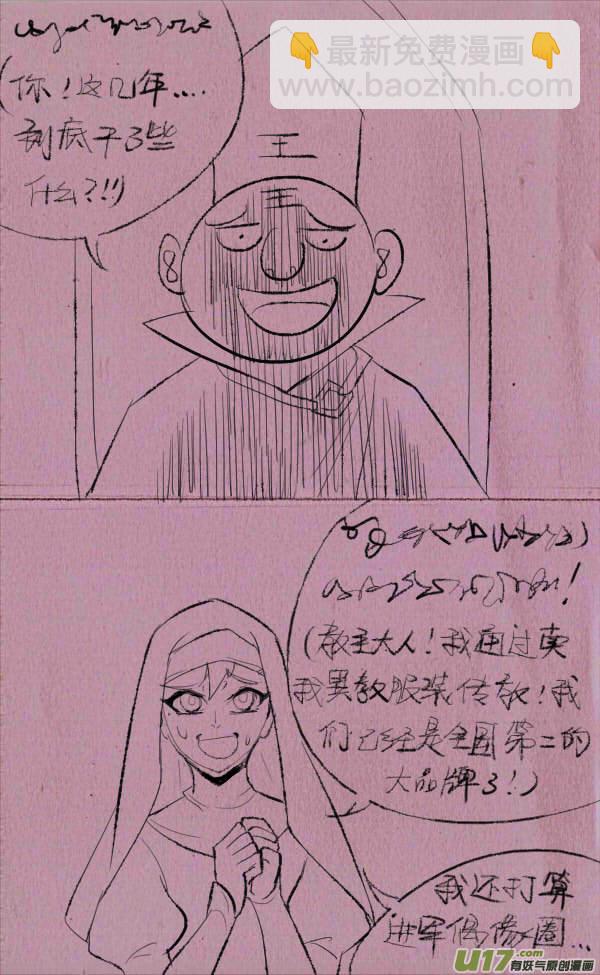 最新免费漫画
www.baozimh.com
(你!这几年....
到底干了些
什么?!!)
王
王
(教主大人!我通过卖
我異教服装传教!我
们已经是全国第二的
大品牌了!)
我还打算
进军偶像圈...
U17.com
有妖气原创漫画